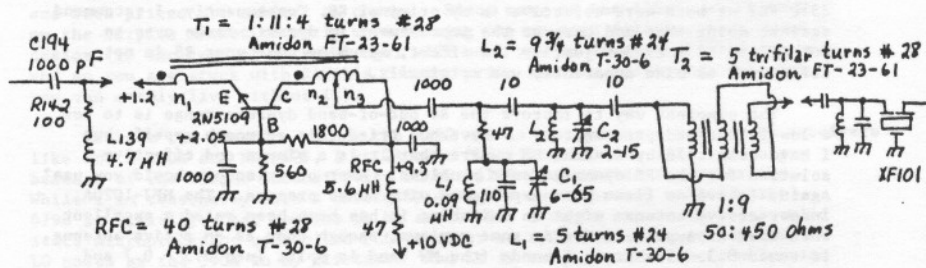 T₁ = 1:11:4 turns #28
Amidon FT-23-61
L₂ = 9 3/4 turns #24
Amidon T-30-6
T₂ = 5 trifilar turns #28
Amidon FT-23-61
C194
1000 pF
R142
100
L139
4.7 µH
+1.2
n₁
E
C
B
n₂
n₃
2N5109
+1.05
1000
560
1800
1000
RFC
5.6 µH
47
+10 VDC
1000
10
10
47
L₂
C₂
2-15
L₁
0.09
µH
110
C₁
6-65
1:9
50:450 ohms
XF101
RFC = 40 turns #28
Amidon T-30-6
L₁ = 5 turns #24
Amidon T-30-6